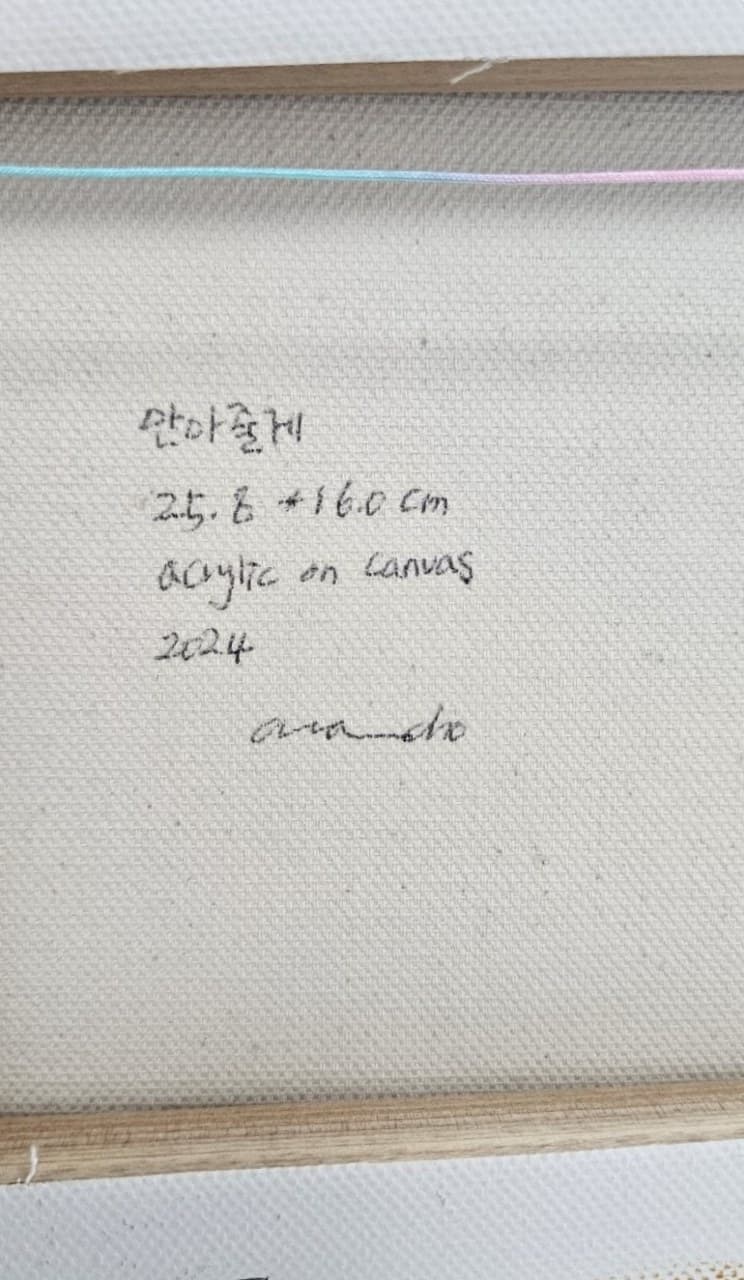 안아줄게
25.8 *16.0 cm
acrylic on canvas
2024
ara_cho